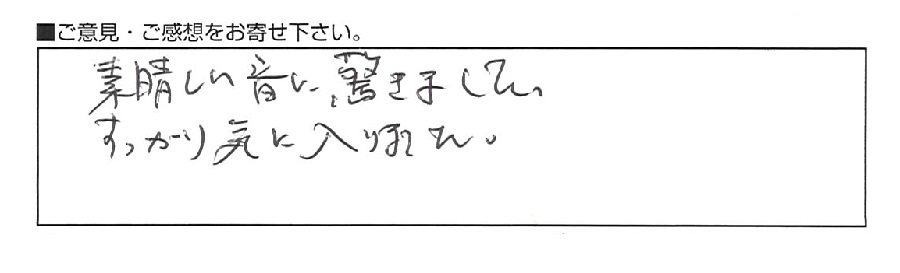 ■ご意見・ご感想をお寄せ下さい。
素晴しい音に、驚きました、
すっかり気に入りました。